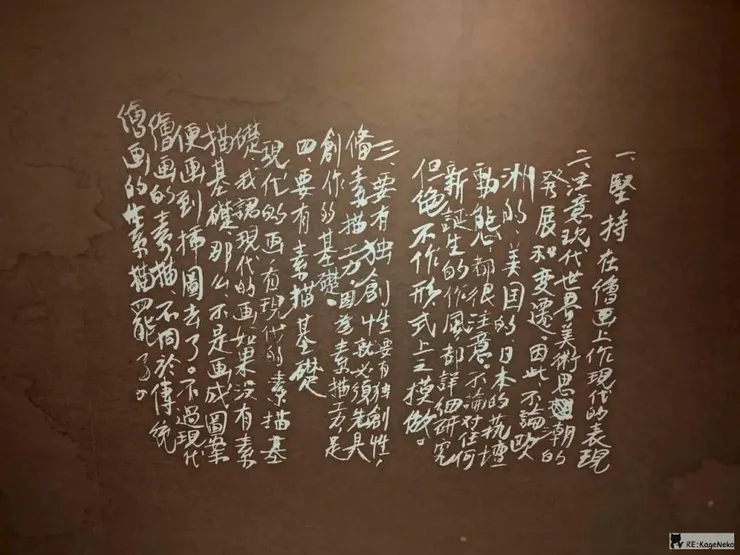 一、堅持在繪画上作現代的表現
二、注意現代世界美術思潮的
發展和變遷、因此、不論歐
洲的、美国的、日本的壇
動態都很注意。不論对任何
新誕生的作風都詳細研究
但絕不作形式上之模倣。
三、要有独創性要有独創性,
就必須先具
備素描工夫。因為素描工夫是
創作的基礎。
四、要有素描基礎
現代的画有現代的素描基
礎、我認現代的画、如果沒有素
描基礎、那么、不是画成圖案
便画到插圖去了。不過現代
繪画的素描不同於傳統
繪画的素描罷了。
RE:KageNeko